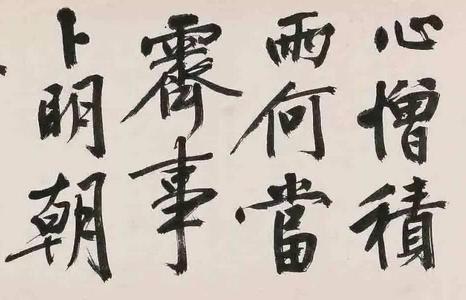 心憎積
雨何當
霽事
卜明朝